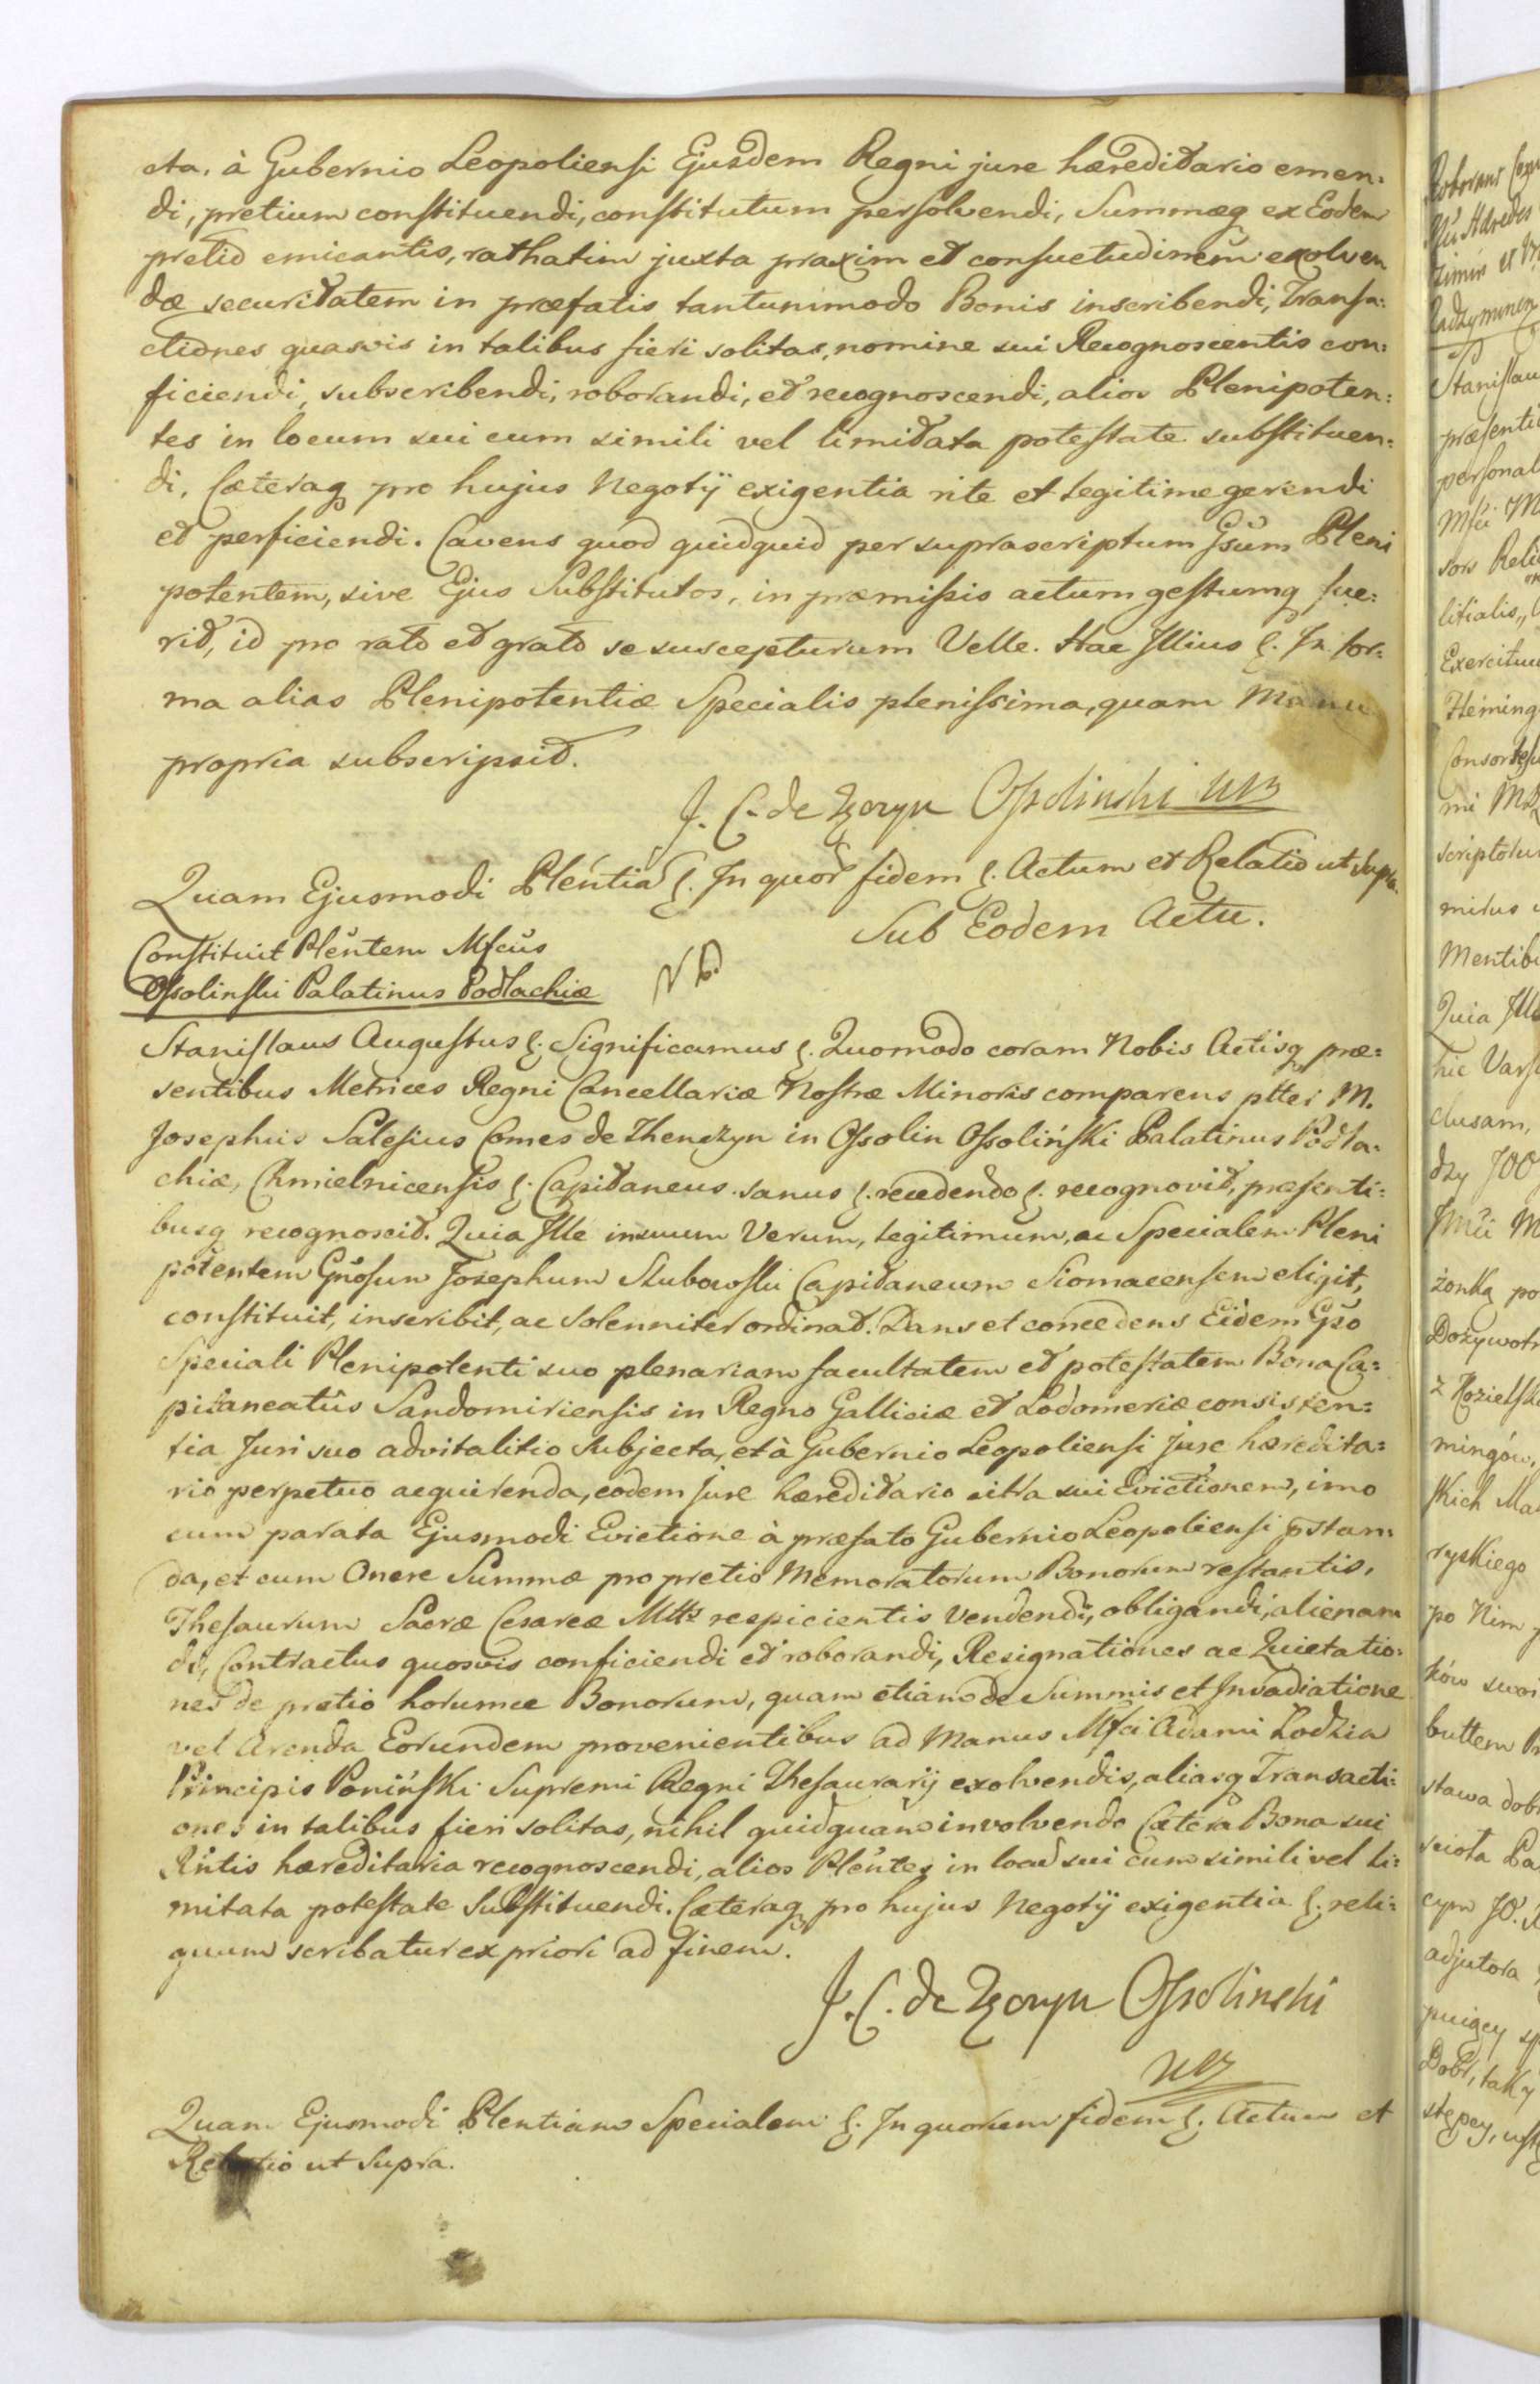 cta, à Gubernio Leopoliensi Ejusdem Regni jure hæreditario emen:
di, pretium constituendi, constitutum persolvendi, Summæq ex Eodem
pretio emicantis, rathatim juxta praxim et consuetudinem exolven
dæ securitatem in præfatis tantummodo Bonis inscribendi, Transa:
ctiones quasvis in talibus fieri solitas, nomine sui Recognoscentis con:
ficiendi, subscribendi, roborandi, et recognoscendi, alios Plenipoten:
tes in locum sui cum simili vel limitata potestate substituen:
di, Cæteraq pro hujus Negotÿ exigentia rite et legitime gerendi
et perficiendi. Cavens quod quidquid per suprascriptum Gsum Pleni
potentem, sive Ejus Substitutos, in præmissis actum gestumq fue:
rit, id pro rato et grato se suscepturum Velle. Hac Illius &. In for:
ma alias Plenipotentiæ Specialis plenissima, quam Manu
propria subscripsit.
J. C. de Tęczyn Ossolinski
Quam Ejusmodi Plentia &. In quor fidem &. Actum et Relatio ut supra.
Sub Eodem Actu.
Constituit Plentem Mfcus
Ossolinski Palatinus Podlachiæ
Stanislaus Augustus &. Significamus &. Quomodo coram Nobis Actisq præ:
sentibus Metrices Regni Cancellariæ Nostræ Minoris comparens pltter M.
Josephus Salesius Comes de Thenczyn in Ossolin Ossoliński Palatinus Podla:
chiæ, Chmielnicensis &. Capitaneus. sanus &. recedendo &. recognovit, præsenti:
busq recognoscit. Quia Ille in suum Verum, legitimum, ac Specialem Pleni
potentem Gnosum Josephum Slubowski Capitaneum Siomacensem eligit,
constituit, inscribit, ac solenniter ordinat. Dans et concedens Eidem Gso
Speciali Plenipotenti suo plenariam facultatem et potestatem Bona Ca:
pitaneatûs Sandomiriensis in Regno Galliciæ et Lodomeriæ consisten:
tia Juri suo advitalitio subjecta, et à Gubernio Leopoliensi Jure hæredita:
rio perpetuo acquirenda, eodem Jure hæreditario citra sui Evictionem, imo
cum parata Ejusmodi Evictione à præfato Gubernio Leopoliensi pstan:
da, et cum Onere Summæ pro pretio Memoratorum Bonorum restantis,
Thesaurum Sacræ Cesareæ Mttis respicientis Vendendi, obligandi, alienan
di, Contractus quosvis conficiendi et roborandi, Resignationes ac Quietatio:
nes de pretio horumce Bonorum, quam etiam de Summis et Invadiatione
vel Arenda Eorundem provenientibus ad Manus Mfci Adami Łodzia
Principis Poniński Supremi Regni Thesaurarÿ exolvendis, aliasq Transacti:
ones in talibus fieri solitas, nihil quidquam involvendo Cætera Bona sui
Rntis hæreditaria recognoscendi, alios Plentes in locum sui cum simili vel li:
mitata potestate Substituendi. Cæteraq pro hujus Negotÿ exigentia &. reli:
quum scribatur ex priori ad finem.
J. C. de Tęczyn Ossolinski
Quam Ejusmodi Plentiam Specialem &. In quorum fidem &. Actum et
Relatio ut Supra.